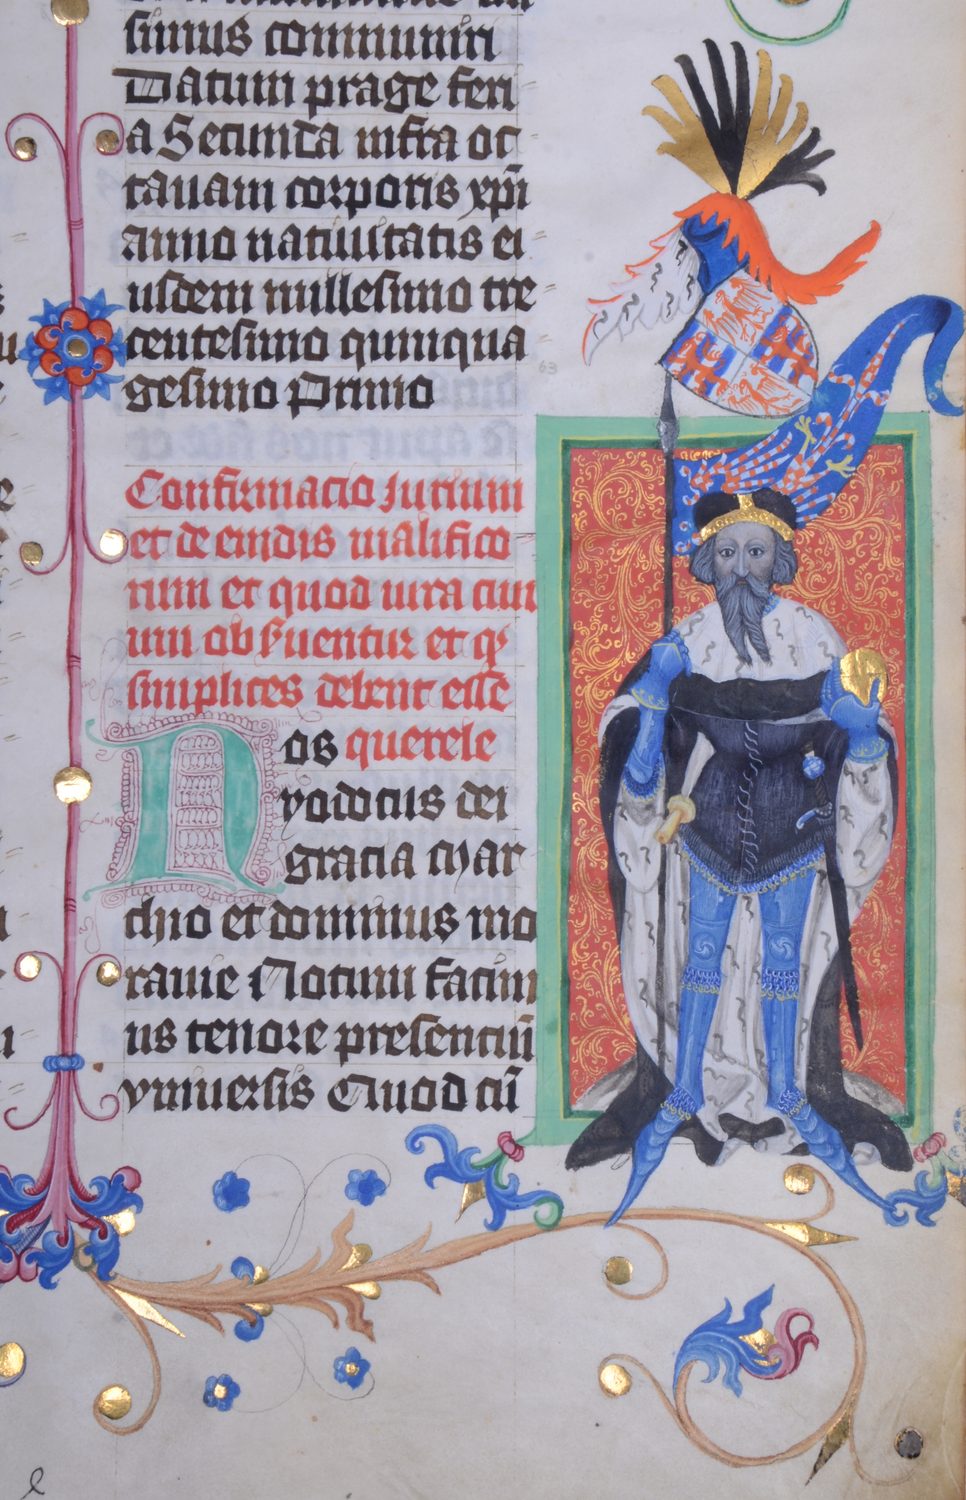 simus communiri
Datum prage feri
a Secunda infra oc
tauam corporis xp̄i
anno natiuitatis ei
usdem millesimo tre
centesimo quinqua
gesimo Primo
63
Confirmacio Jurium
et de eiudis malifico
rum et quod iura ciui
um obs̄uentur et qͥ
simplices debent esse
Nos querele
yodocus dei
gracia Mar
chio et dominus mo
rauie Notum facim
us tenore presenciū
vniuersis Quod cū